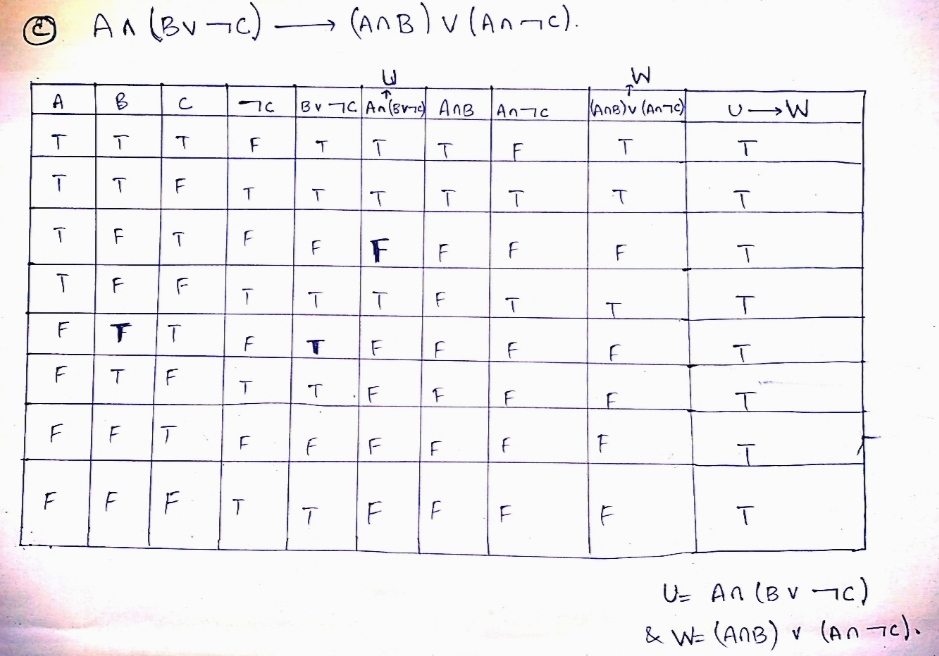 ⓒ A∧(B∨¬C) ⟶ (A∧B)∨(A∧¬C).
U W
↑ ↑
A B C ¬C B∨¬C A∧(B∨¬C) A∧B A∧¬C (A∧B)∨(A∧¬C) U⟶W
T T T F T T T F T T
T T F T T T T T T T
T F T F F F F F F T
T F F T T T F T T T
F T T F T F F F F T
F T F T T F F F F T
F F T F F F F F F T
F F F T T F F F F T
U= A∧(B∨¬C)
& W= (A∧B)∨(A∧¬C).